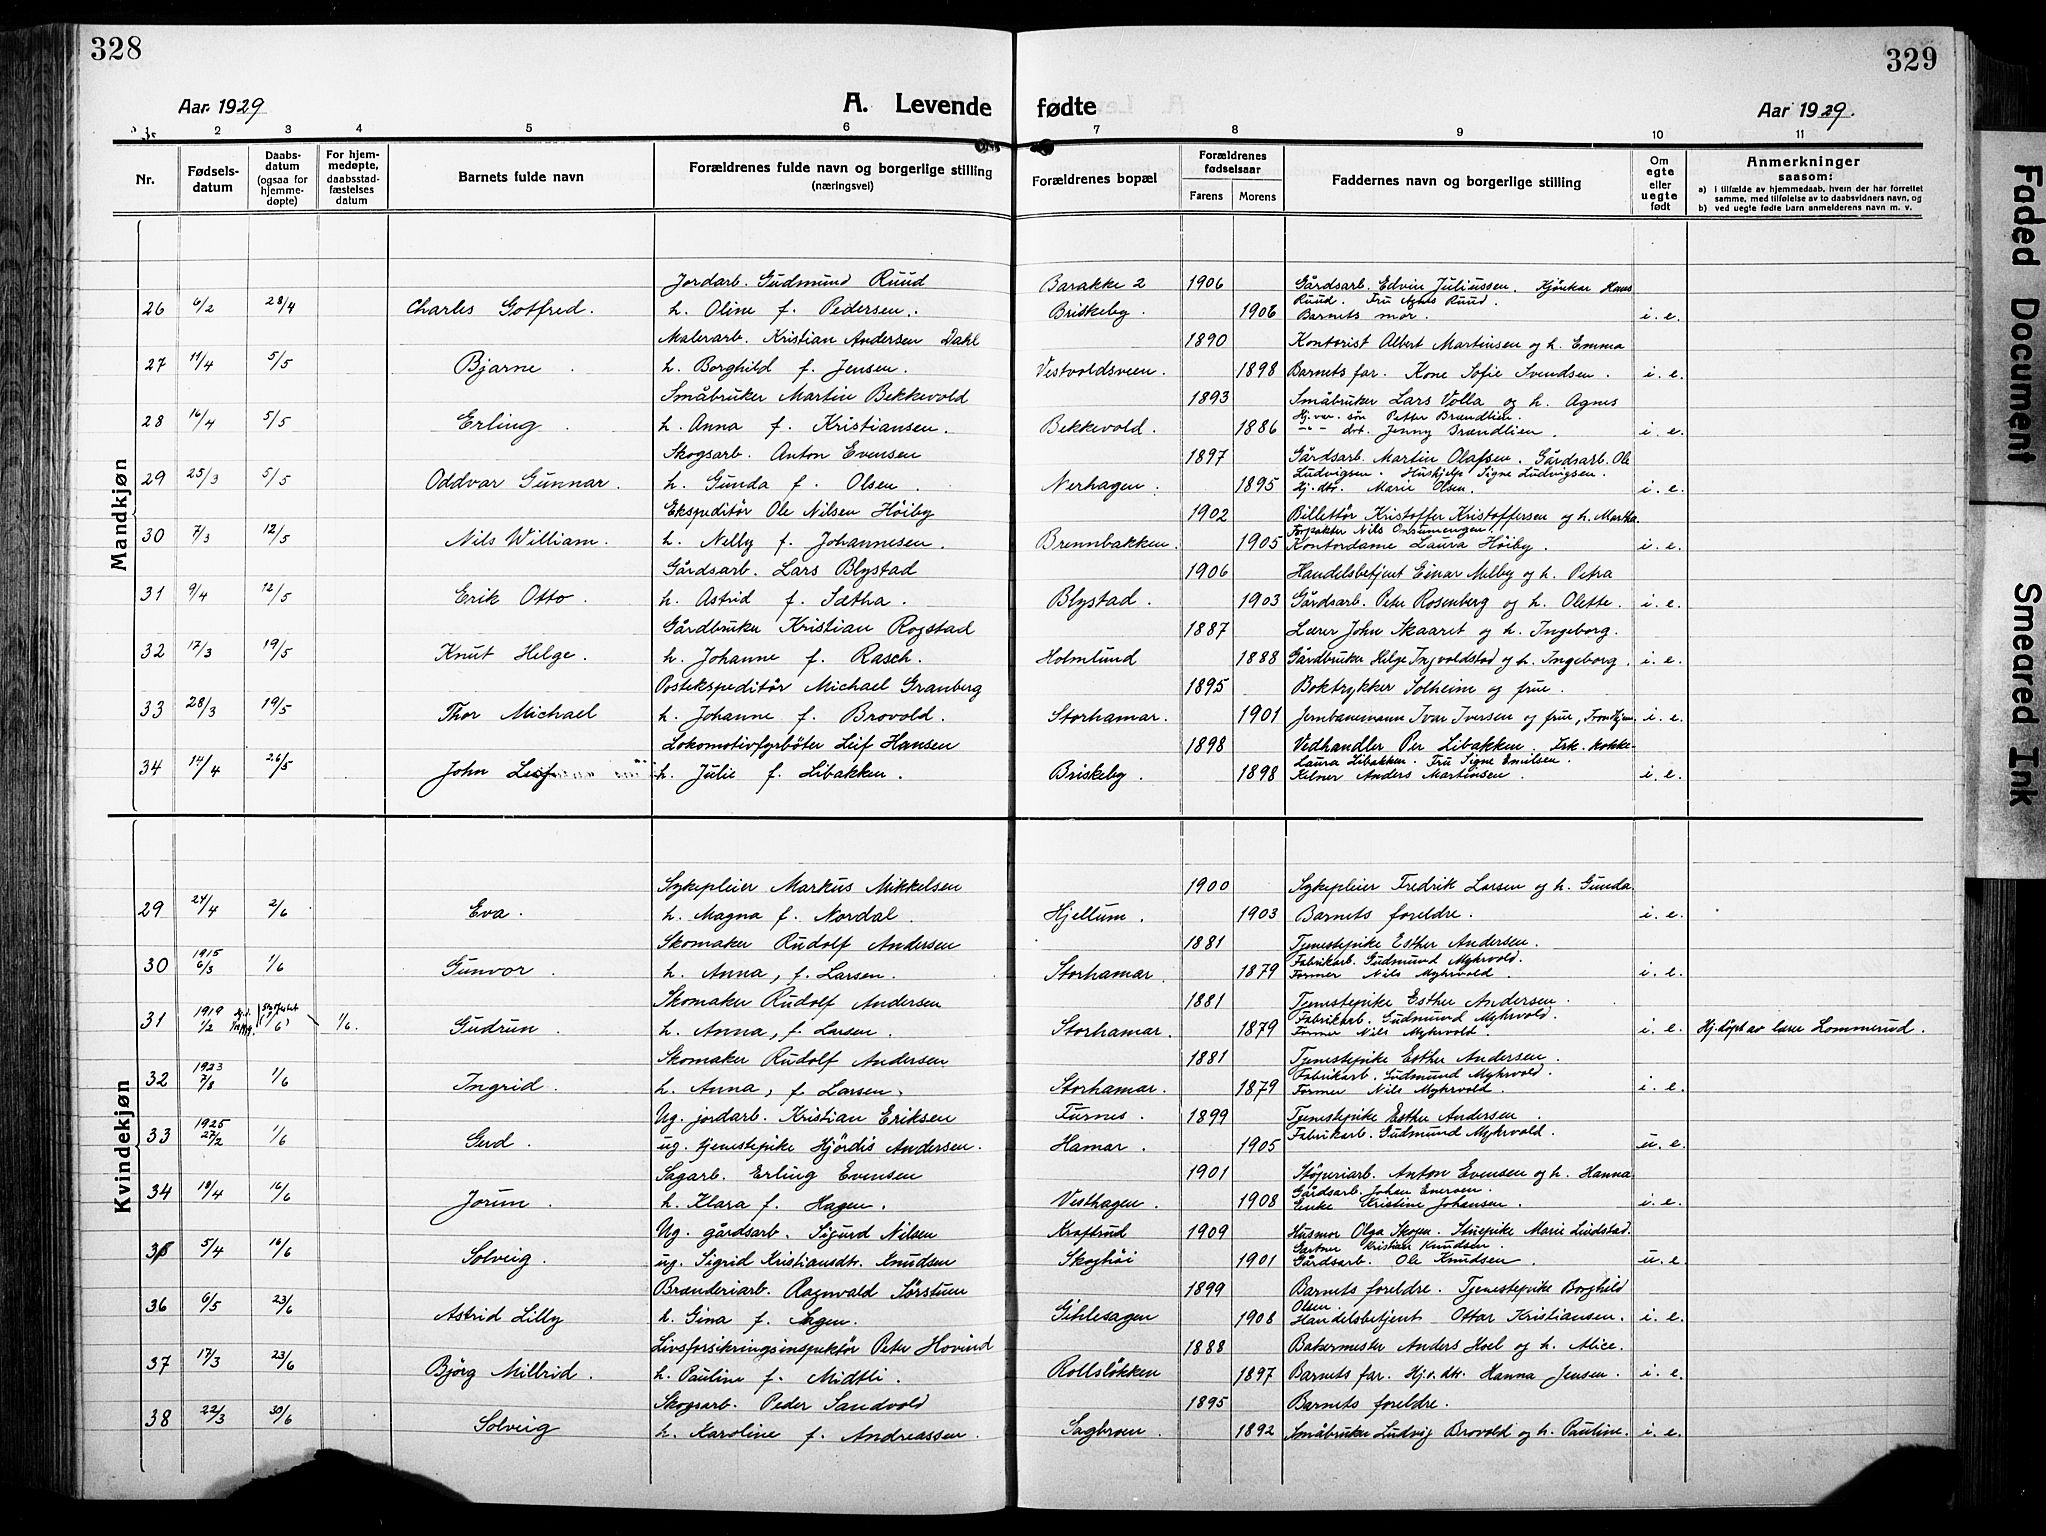 328
329
Aar 1929
A. Levende fødte
Aar 1929.
2 3 4 5 6 7 8 9 10 11
Nr.
Fødsels-datum
Daabs-datum (ogsaa for hjemme-døpte)
For hjem-medøpte, daabsstad-fæstelses datum
Barnets fulde navn
Forældrenes fulde navn og borgerlige stilling (næringsvei)
Forældrenes bopæl
Forældrenes fødselsaar
Farens Morens
Faddernes navn og borgerlige stilling
Om egte eller uegte født
Anmerkninger saasom:
a) i tilfælde av hjemmedaab, hvem der har forrettet samme, med tilføielse av to daabsvidners navn, og
b) ved uegte fødte barn anmelderens navn m. v.
Mandkjøn
Jordarb. Gudmund Ruud Barakke 2 1906 Gårdsarb. Edvin Juliussen. Hans
26 6/2 28/4 Charles Gotfred. h. Oline f. Pedersen. Briskeby. 1906 Ruud. Fru Agnes Ruud. Barnets mor. i. e.
Malerarb. Kristian Andersen Dahl 1890 Kontorist Albert Martinsen og h. Emma
27 11/4 5/5 Bjarne h. Borghild f. Jensen. Vestvoldsveien. 1898 Barnets far. Kone Sofie Svendsen. i. e.
Småbruker Martin Bekkevold 1893 Småbruker Lars Volla og h. Agnes
28 16/4 5/5 Erling. h. Anna f. Kristiansen. Bekkevold. 1886 Hj.vær. søn Petter Brændlien. -"- dtr. Jenny Brændlien. i. e.
Skogsarb. Anton Evensen 1897 Gårdsarb. Martin Olafsen. Gårdsarb. Ole
29 25/3 5/5 Oddvar Gunnar. h. Gunda f. Olsen. Nerhagen. 1895 Ludvigsen. Hushjelp Signe Ludvigsen. Hj. dtr. Marie Olsen. i. e.
Ekspeditør Ole Nilsen Höiby 1902 Billettör Kristoffer Kristoffersen og h. Martha.
30 7/3 12/5 Nils William. h. Nelly f. Johannesen. Brennbakken. 1905 Forpakter Nils Onsumengen Kontordame Laura Höiby. i. e.
Gårdsarb. Lars Blystad 1906 Handelsbetjent Einar Melby og h. Petra
31 9/4 12/5 Erik Otto. h. Astrid f. Sætha. Blystad. 1903 Gårdsarb. Peter Rosenberg og h. Olette. i. e.
Gårdbruker Kristian Rogstad 1887 Lærer John Skaaret og h. Ingeborg.
32 17/3 19/5 Knut Helge. h. Johanne f. Rasch. Holmlund 1888 Gårdbruker Helge Ingvoldstad og h. Ingeborg. i. e.
Postekspeditör Michael Granberg 1895 Boktrykker Solheim og frue.
33 28/3 19/5 Thor Michael h. Johanne f. Brovold. Storhamar. 1901 Jernbanemann Ivar Iversen og frue, Trondhjem i. e.
Lokomotivfyrböter Leif Hansen 1898 Vedhandler Per Libakken. Frk. kokke-
34 14/4 26/5 John Leif h. Julie f. Libakken. Briskeby. 1898 Laura Libakken. Fru Signe Emilsen. Kelner Anders Martinsen. i. e.
Kvindekjøn
Sykepleier Markus Mikkelsen 1900 Sykepleier Fredrik Larsen og h. Gunda
29 24/4 2/6 Eva. h. Magna f. Nordal. Hjellum. 1903 Barnets foreldre. i. e.
Skomaker Rudolf Andersen 1881 Tjenestepike Esther Andersen.
30 1915 6/3 1/6 Gunvor. h. Anna, f. Larsen. Storhamar 1879 Fabrikarb. Gudmund Myhrvold. Former Nils Myhrvold. i. e.
Skomaker Rudolf Andersen 1881 Tjenestepike Esther Andersen.
31 1919 1/2 (1/6) 1/6. Gudrun. h. Anna, f. Larsen. Storhamar. 1879 Fabrikarb. Gudmund Myhrvold. Former Nils Myhrvold. i. e. Hj. döpt av lærer Lommerud.
Skomaker Rudolf Andersen 1881 Tjenestepike Esther Andersen.
32 1923 7/8 1/6 Ingrid. h. Anna, f. Larsen. Storhamar. 1879 Fabrikarb. Gudmund Myhrvold. Former Nils Myhrvold. i. e.
Ug. jordarb. Kristian Eriksen Furnes. 1899 Tjenestepike Esther Andersen.
33 1925 27/2 1/6 Gerd. ug. tjenestepike Hjördis Andersen. Hamar. 1905 Fabrikarb. Gudmund Myhrvold. u. e.
Sagarb. Erling Evensen 1901 Støperiarb. Anton Evensen og h. Hanna
34 18/4 16/6 Jorun. h. Klara f. Hagen. Vesthagen. 1908 Gårdsarb. Johan Eneroen. Enke Kristine Johansen. i. e.
Ug. gårdsarb. Sigurd Nilsen Kraftrud 1909 Husmor Olga Skogen. Stuepike Marie Lindstad.
35 5/4 16/6 Solveig. ug. Sigrid Kristiansdtr. Knudsen Skoghöi 1901 Gartner Kristian Knudsen. Gårdsarb. Ole Knudsen. u. e.
Brænderiarb. Ragnvald Sörstuen 1899 Barnets foreldre. Tjenestepike Borghild
36 6/5 23/6 Astrid Lilly h. Gina f. Sagen. Gihlesagen 1908 Olsen Handelsbetjent Ottar Kristiansen. i. e.
Livsforsikringsinspektör Peter Hovind 1888 Bakermester Anders Hoel og h. Alice.
37 17/3 23/6 Björg Millrid. h. Pauline f. Midtli. Rollslökken 1897 Barnets far. Hj.v. dtr. Hanna Jensen. i. e.
Skogsarb. Peder Sandvold 1895 Barnets foreldre.
38 22/3 30/6 Solveig h. Karoline f. Andreassen. Sagbroen. 1892 Småbruker Ludvig Brovold og h. Pauline. i. e.
Faded Document
Smeared Ink